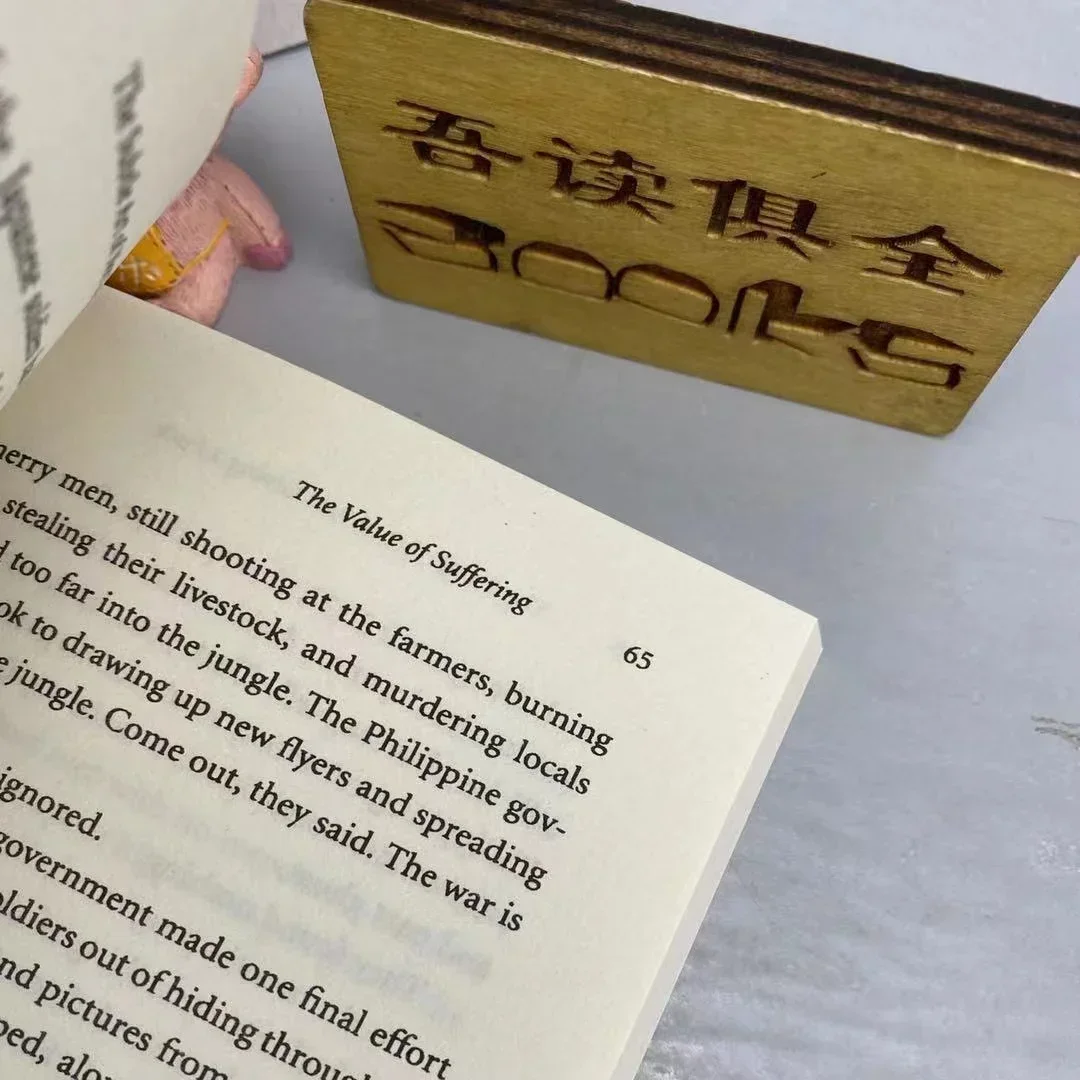 吾读俱全
Books
The Value of Suffering
65
men, still shooting at the farmers, burning
stealing their livestock, and murdering locals
too far into the jungle. The Philippine gov-
to drawing up new flyers and spreading
jungle. Come out, they said. The war is
ignored.
government made one final effort
out of hiding through
pictures from